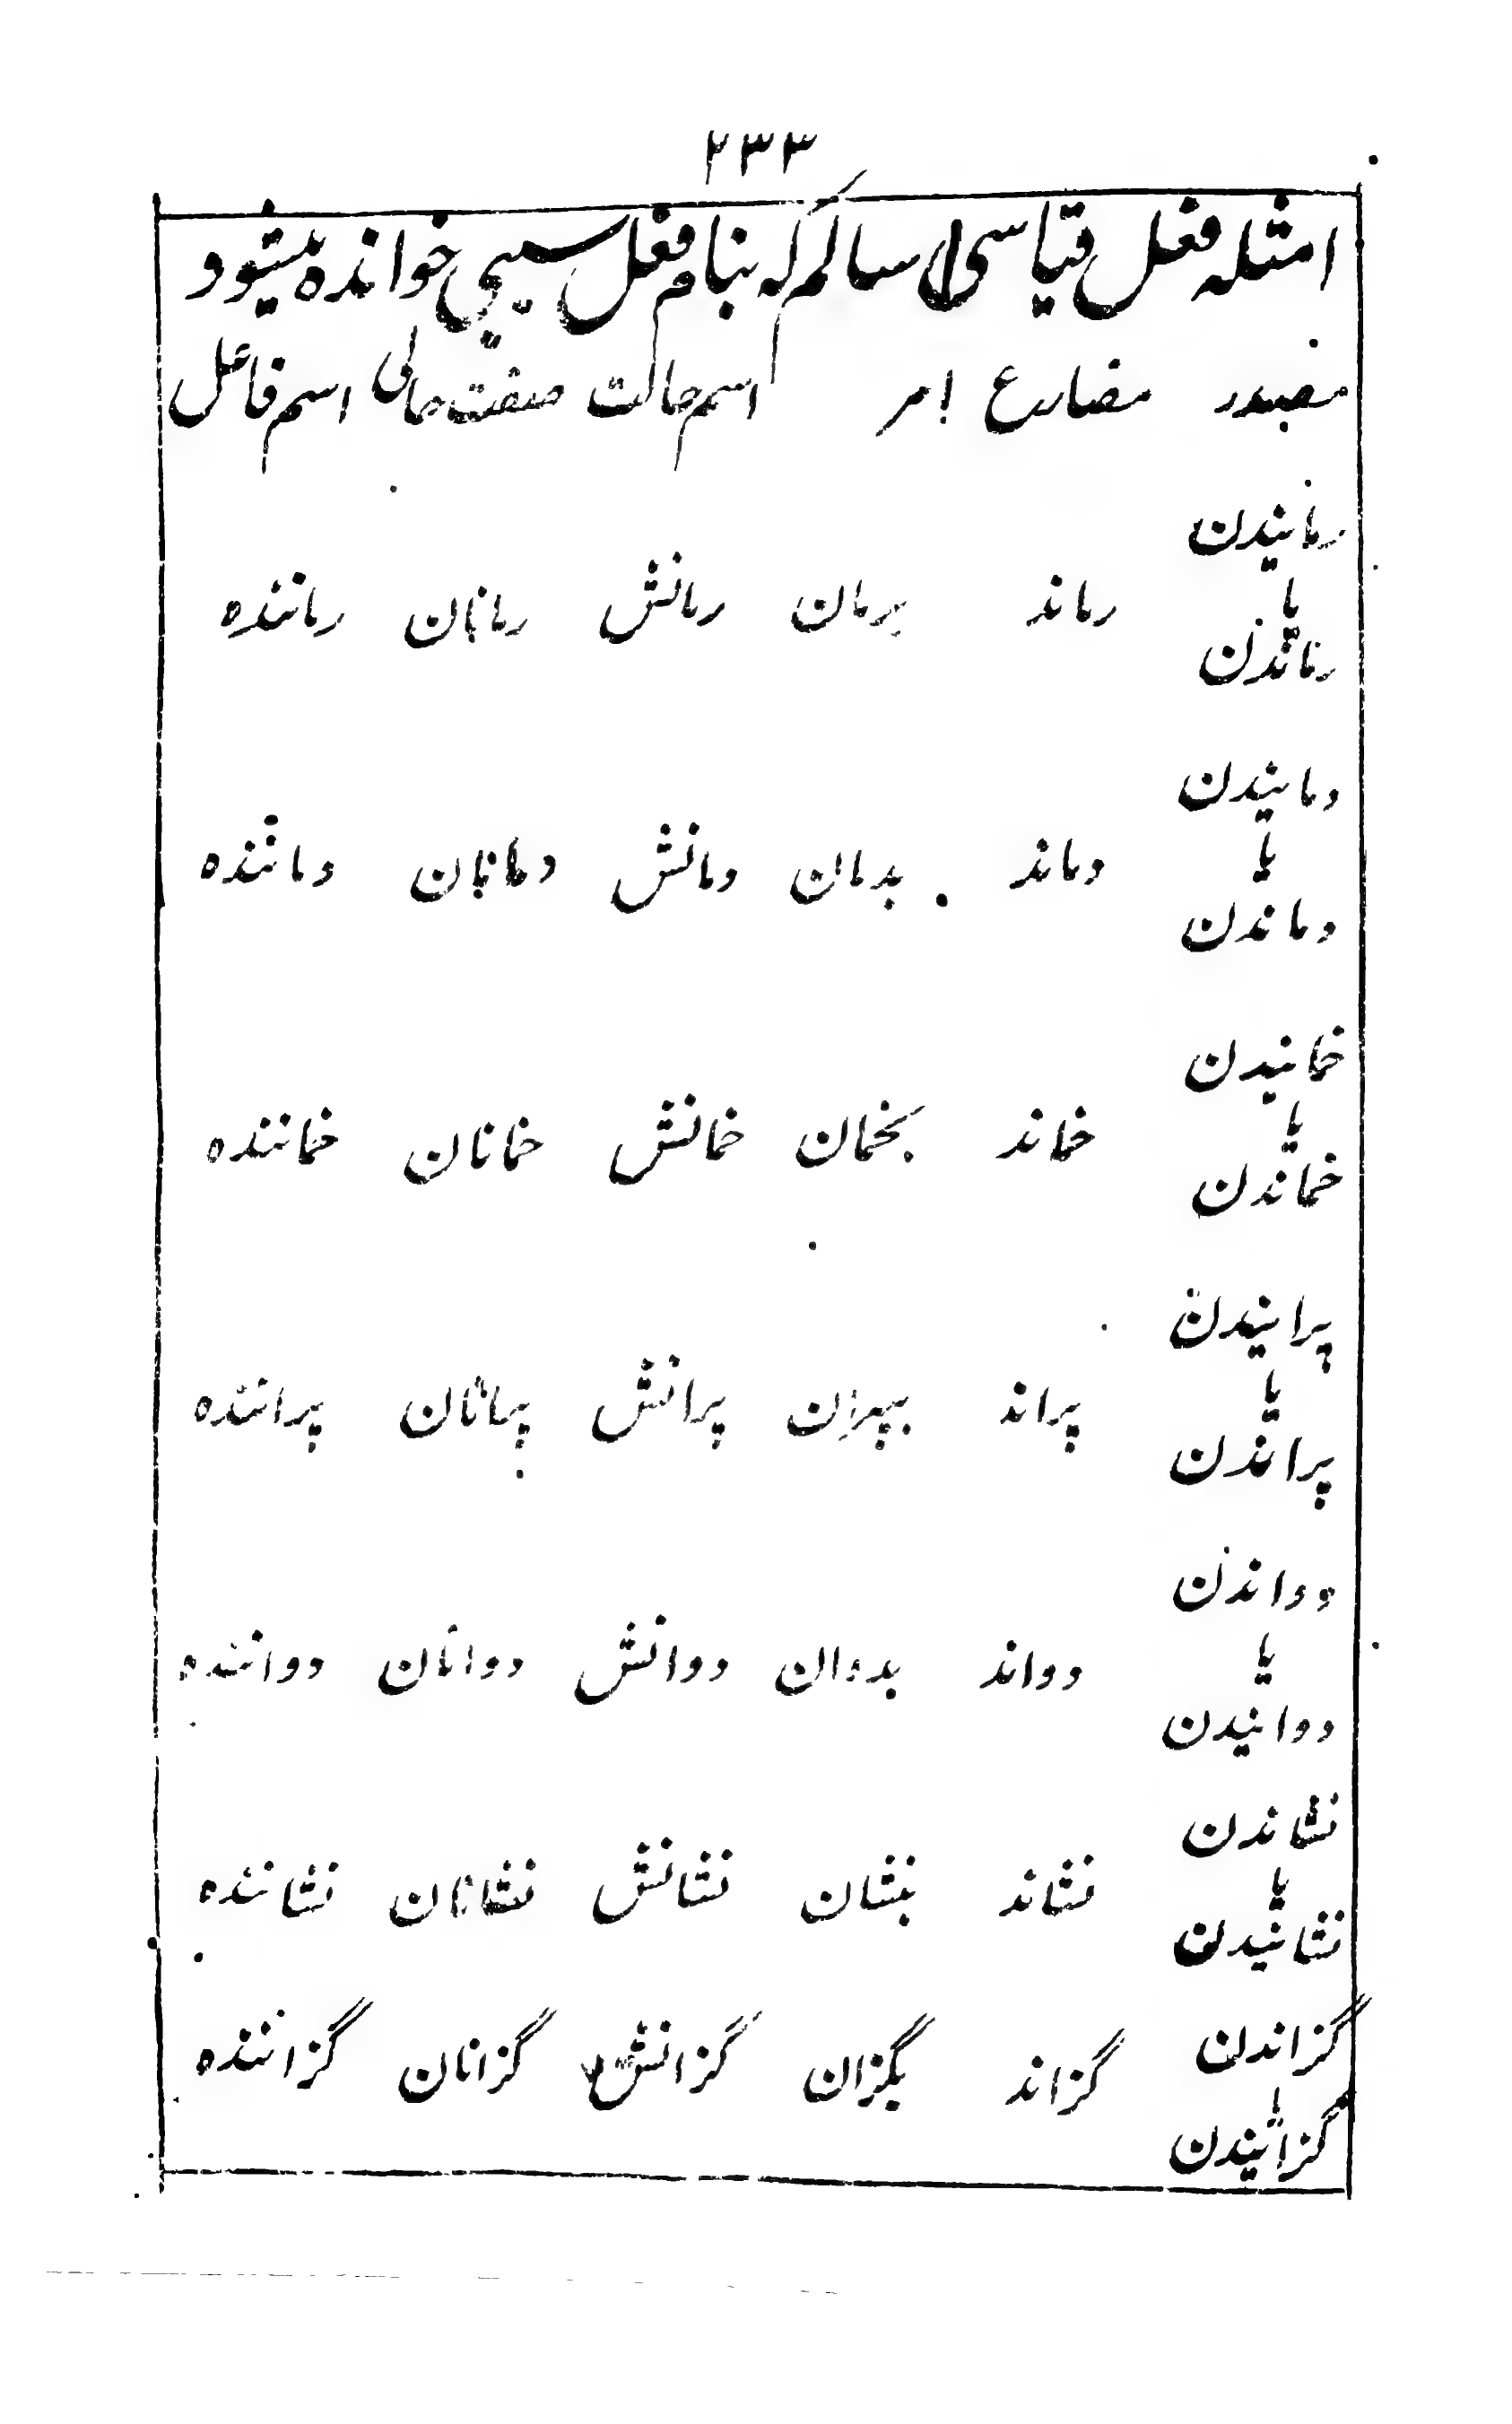 ۲۳۳
امثله فعل قیاسی سالم که بنام فعل سببی خوانده میشود
مصدر مضارع امر اسم حالت صفت حالی اسم فاعل
رمانیدن
یا
رماند برمان رمانش رمانان رماننده
رماندن
دمانیدن
یا
دماند بدمان دمانش دمانان دماننده
دماندن
خمانیدن
یا
خماند بخمان خمانش خمانان خماننده
خماندن
پرانیدن
یا
پراند بپران پرانش پرانان پراننده
پراندن
دواندن
یا
دواند بدوان دوانش دوانان دواننده
دوانیدن
نشاندن
یا
نشاند بنشان نشانش نشانان نشاننده
نشانیدن
گزاندن
گزاند بگزان گزانش گزانان گزاننده
یا
گزانیدن